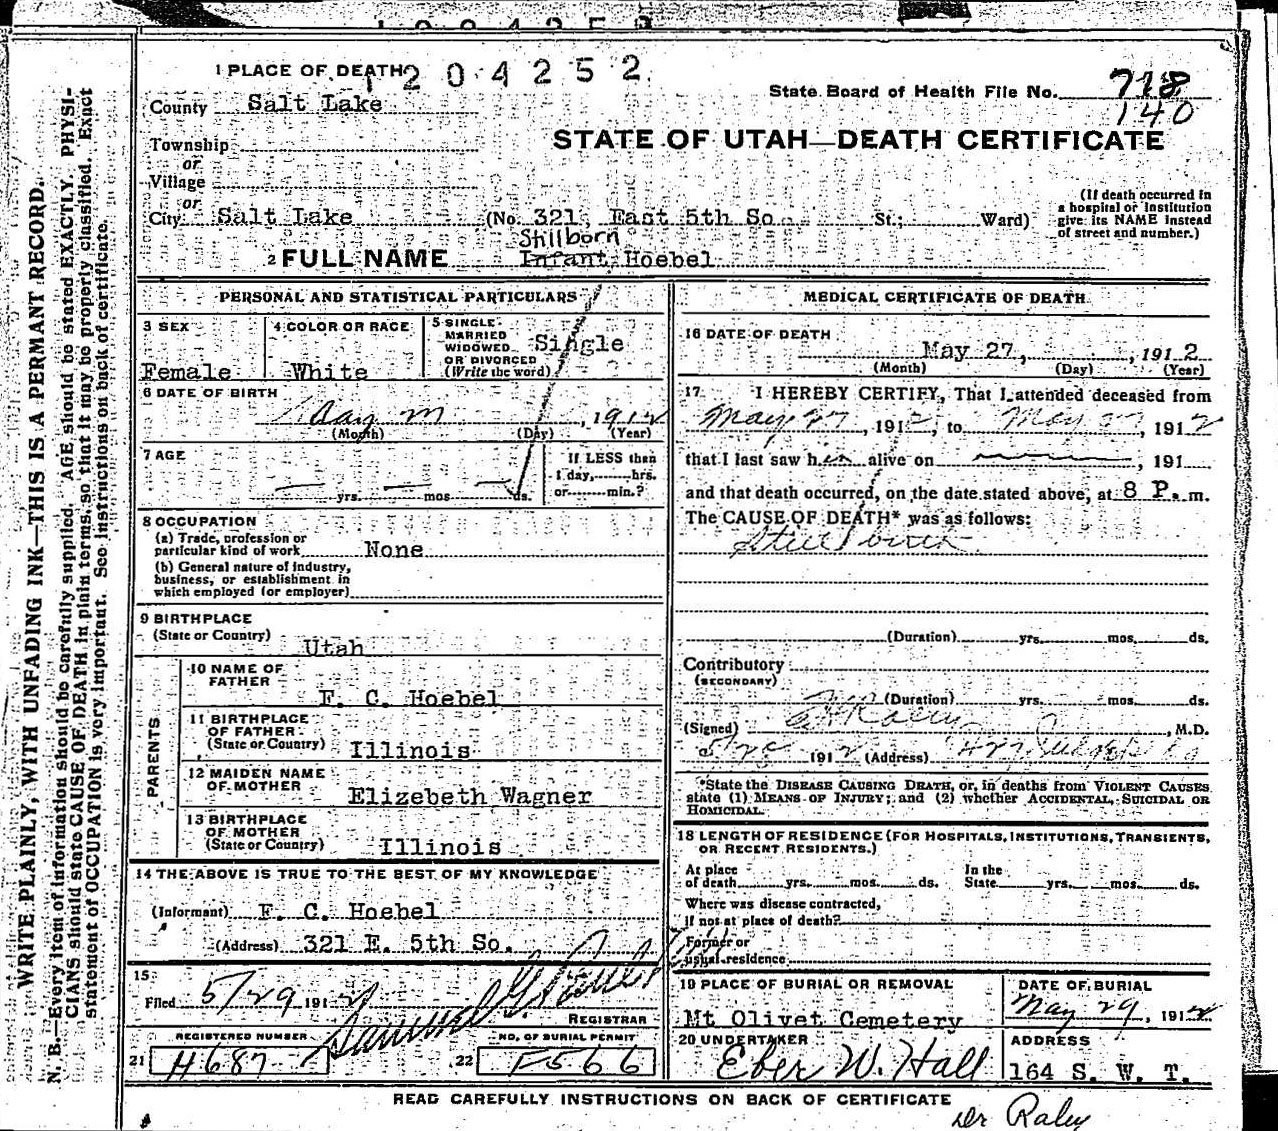 1 PLACE OF DEATH
1204252
State Board of Health File No. 718
140
County Salt Lake
STATE OF UTAH—DEATH CERTIFICATE
Township
or
Village
or
City Salt Lake (No. 321 East 5th So St.; Ward)
(If death occurred in a hospital or institution give its NAME instead of street and number.)
Stillborn
2 FULL NAME Infant Hoebel
PERSONAL AND STATISTICAL PARTICULARS
3 SEX
Female
4 COLOR OR RACE
White
5 SINGLE
MARRIED
WIDOWED
OR DIVORCED
(Write the word)
Single
6 DATE OF BIRTH
, 1912
(Month) (Day) (Year)
7 AGE
yrs. mos. ds.
If LESS than
1 day, hrs.
or min.?
8 OCCUPATION
(a) Trade, profession or
particular kind of work None
(b) General nature of industry,
business, or establishment in
which employed (or employer)
9 BIRTHPLACE
(State or Country)
Utah
PARENTS
10 NAME OF
FATHER
F. C. Hoebel
11 BIRTHPLACE
OF FATHER
(State or Country) Illinois
12 MAIDEN NAME
OF MOTHER
Elizebeth Wagner
13 BIRTHPLACE
OF MOTHER
(State or Country) Illinois
14 THE ABOVE IS TRUE TO THE BEST OF MY KNOWLEDGE
(Informant) F. C. Hoebel
(Address) 321 E. 5th So.
15
Filed 5/29 1912
Samuel G.
REGISTRAR
REGISTERED NUMBER
21 H687
NO. OF BURIAL PERMIT
22 F566
MEDICAL CERTIFICATE OF DEATH
16 DATE OF DEATH
May 27, , 1912
(Month) (Day) (Year)
17 I HEREBY CERTIFY, That I attended deceased from
May 27, 1912, to May 27, 1912
that I last saw her alive on , 191
and that death occurred, on the date stated above, at 8 P. m.
The CAUSE OF DEATH* was as follows:
Still birth
(Duration) yrs. mos. ds.
Contributory
(SECONDARY)
(Duration) yrs. mos. ds.
(Signed) , M.D.
1912 (Address)
*State the DISEASE CAUSING DEATH, or, in deaths from VIOLENT CAUSES
state (1) MEANS OF INJURY; and (2) whether ACCIDENTAL, SUICIDAL OR
HOMICIDAL.
18 LENGTH OF RESIDENCE (FOR HOSPITALS, INSTITUTIONS, TRANSIENTS,
OR RECENT RESIDENTS.)
At place
of death yrs. mos. ds.
In the
State yrs. mos. ds.
Where was disease contracted,
if not at place of death?
Former or
usual residence
19 PLACE OF BURIAL OR REMOVAL
Mt Olivet Cemetery
DATE OF BURIAL
May 29, 1912
20 UNDERTAKER
Eber W. Hall
ADDRESS
164 S. W. T.
READ CAREFULLY INSTRUCTIONS ON BACK OF CERTIFICATE
Dr Raley
WRITE PLAINLY, WITH UNFADING INK—THIS IS A PERMANT RECORD.
N. B.—Every item of information should be carefully supplied. AGE should be stated EXACTLY. PHYSI-
CIANS should state CAUSE OF DEATH in plain terms, so that it may be properly classified. Exact
statement of OCCUPATION is very important. See instructions on back of certificate.